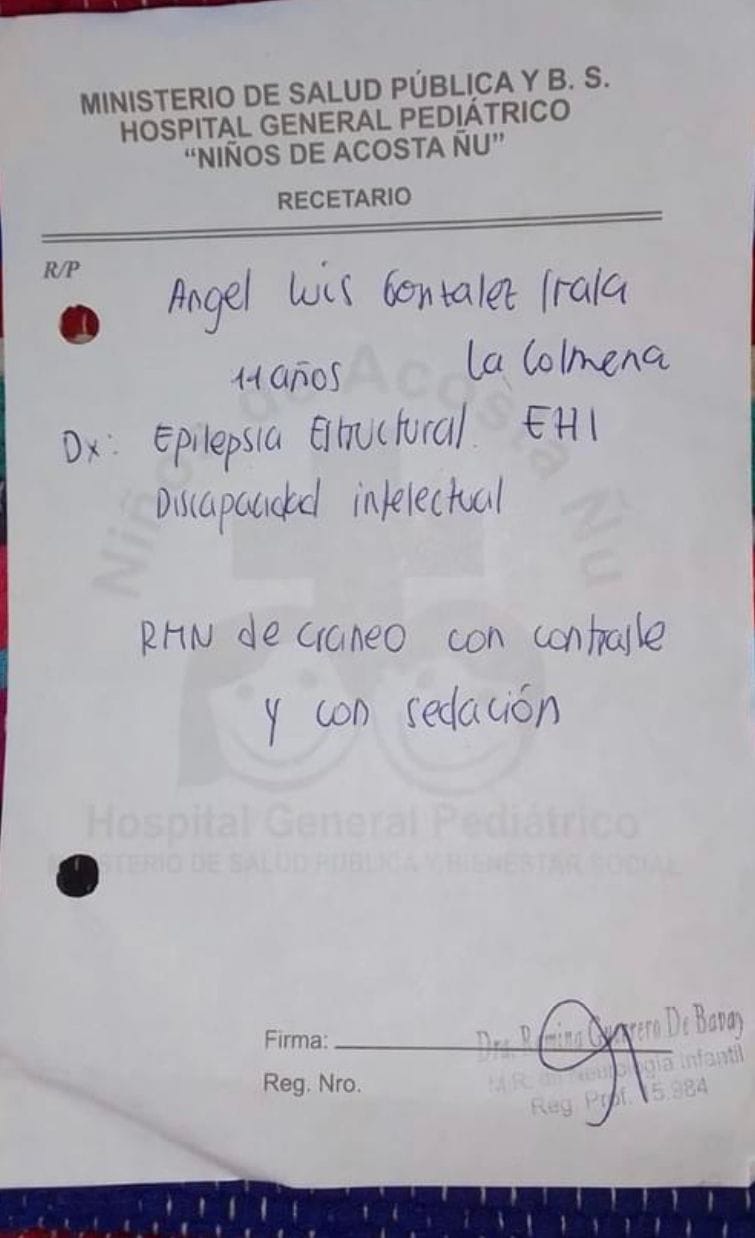 MINISTERIO DE SALUD PÚBLICA Y B. S.
HOSPITAL GENERAL PEDIÁTRICO
“NIÑOS DE ACOSTA ÑU”
RECETARIO
R/P
Angel Luis Gontalez Irala
11 años La Colmena
Dx: Epilepsia Estructural. EHI
Discapacidad intelectual
RMN de craneo con contraste
y con sedación
Niños de Acosta Ñu
Hospital General Pediátrico
MINISTERIO DE SALUD PÚBLICA Y BIENESTAR SOCIAL
Firma:
Dra. Romina Guerrero De
M.R. de Neurología Infantil
Reg. Nro.
Reg. Prof. 15.984